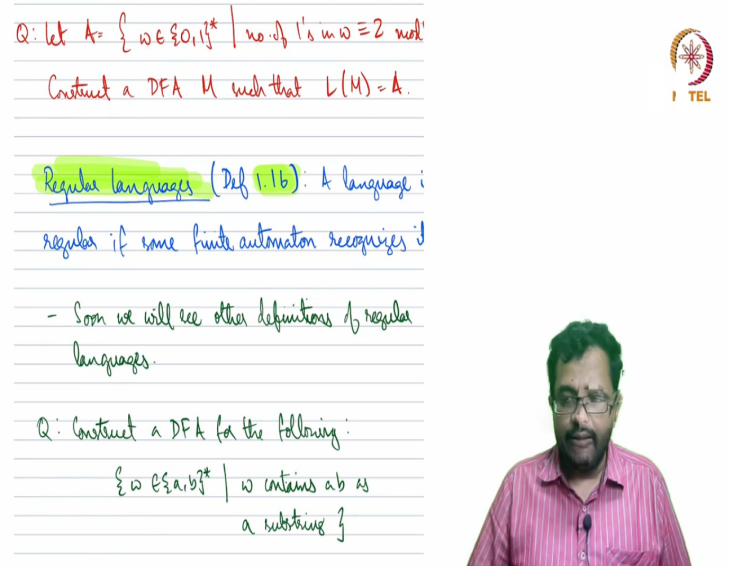 Q: Let A = { w ∈ {0,1}* | no. of 1's in w ≡ 2 mod
Construct a DFA M such that L(M) = A.
Regular languages (Def 1.16): A language
regular if some finite automaton recognizes
- Soon we will see other definitions of regular
languages.
Q: Construct a DFA for the following:
{ w ∈ {a,b}* | w contains ab as
a substring }
TEL